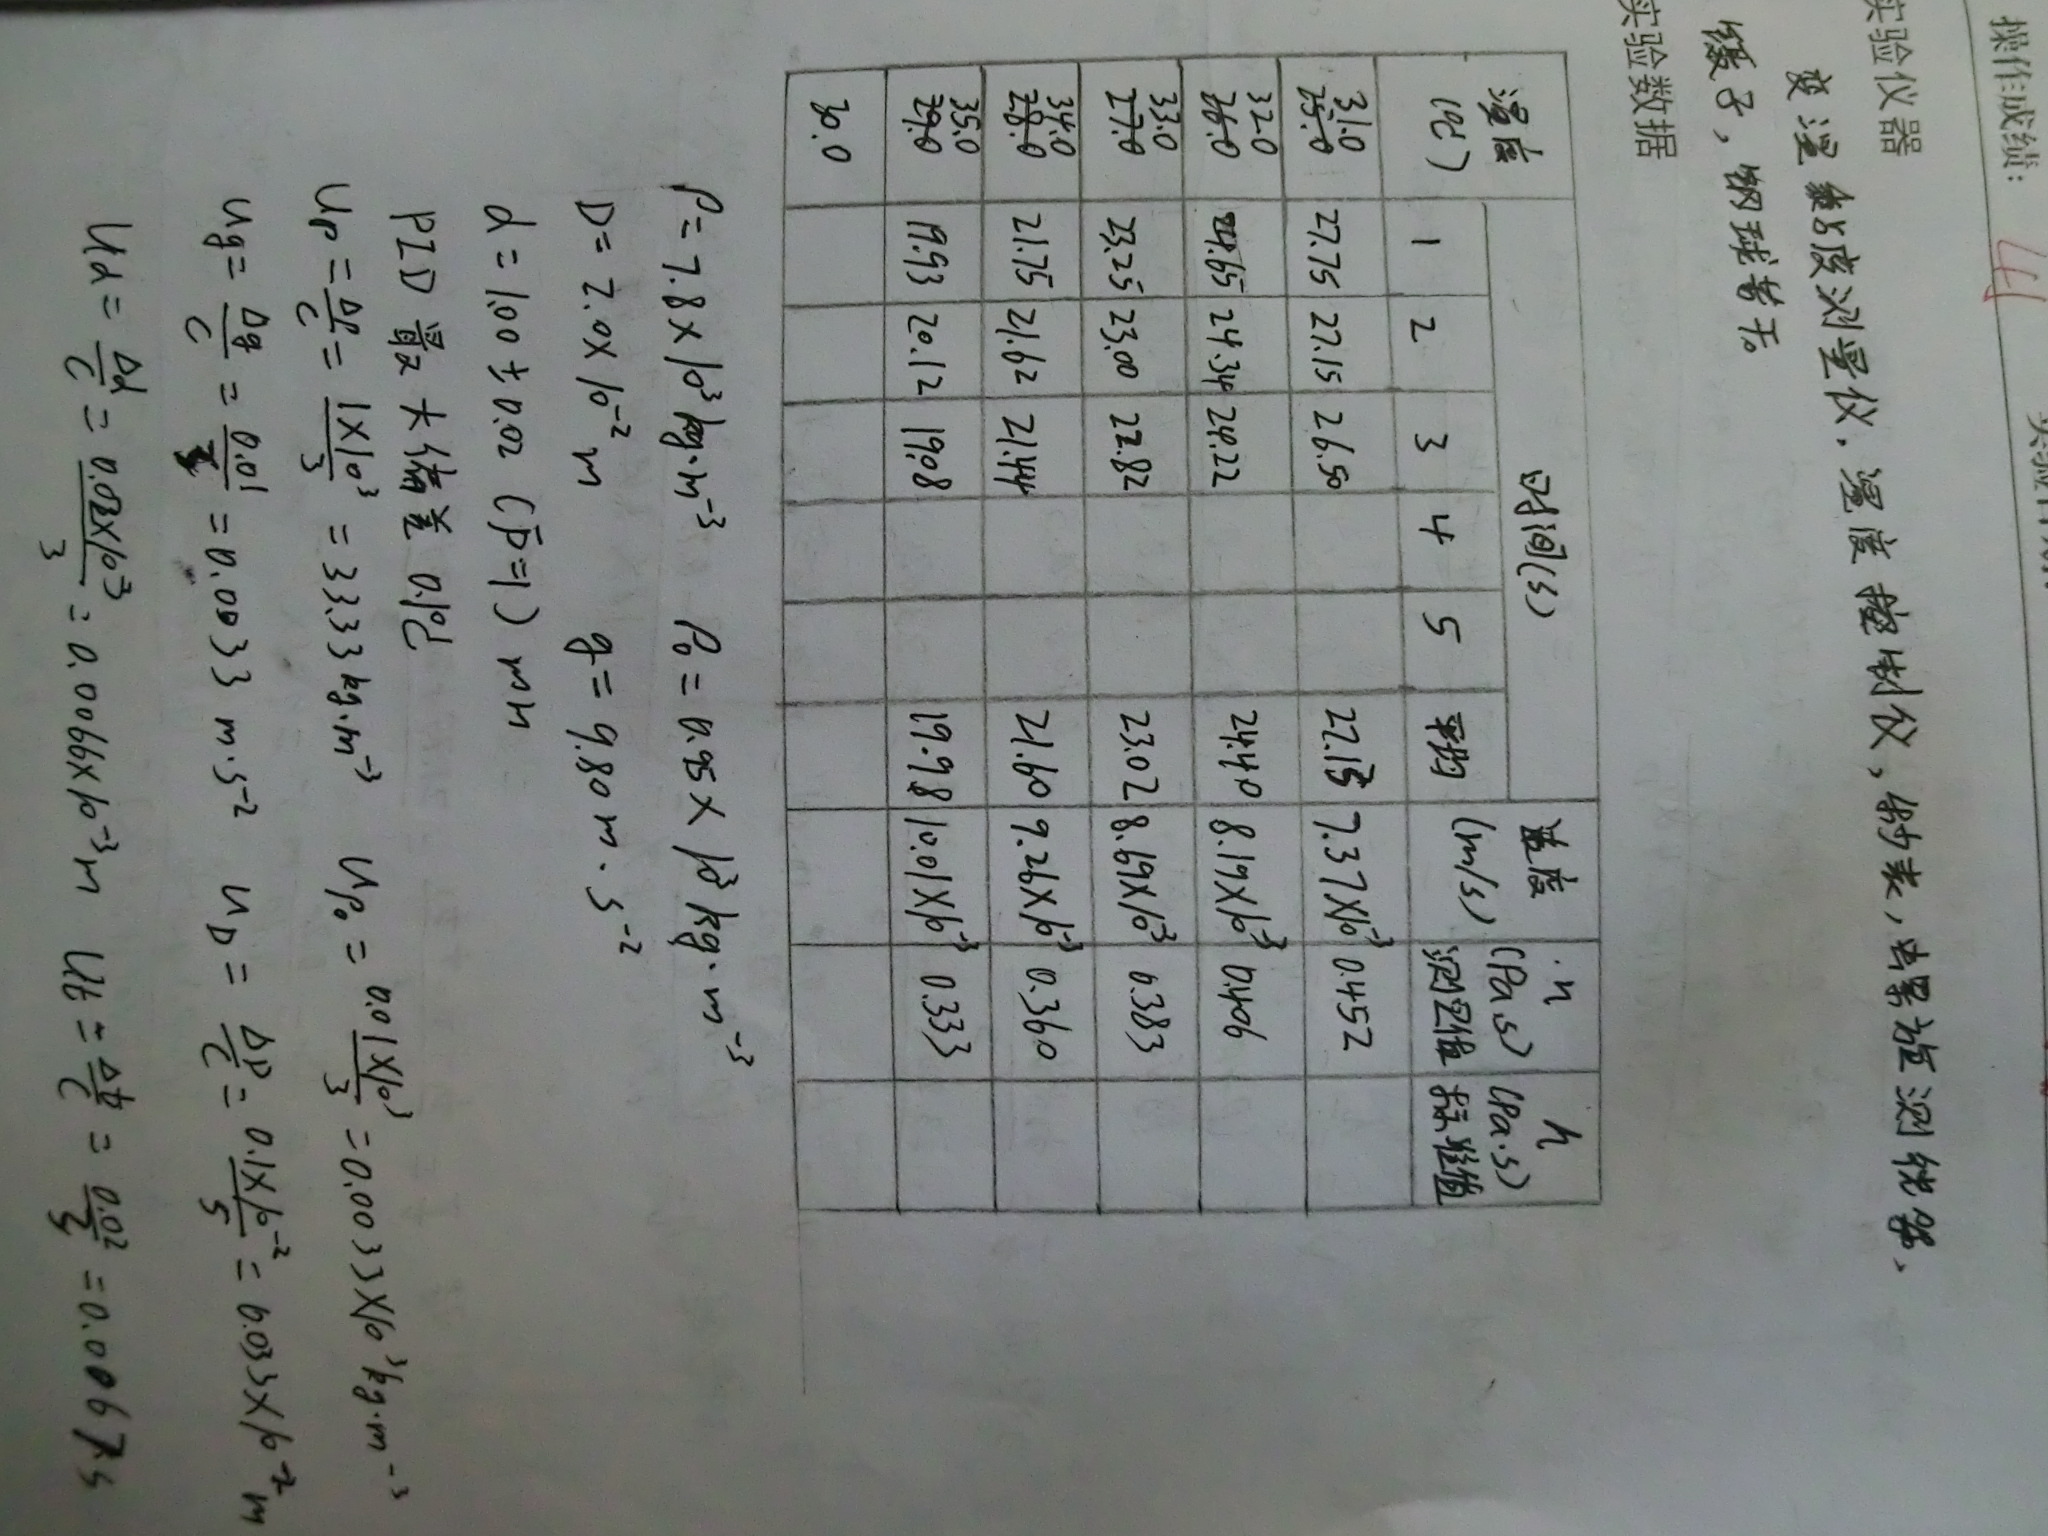 操作成绩:
实验仪器
变温黏度测量仪,温度控制仪,秒表,螺旋测微器,
镊子,钢球若干。
实验数据
温度 (℃) 时间(s) 速度 (m/s) η (Pa.s) 测量值 η (Pa.s) 标准值
1 2 3 4 5 平均
31.0 25.0 27.75 27.15 26.50 27.13 7.37×10⁻³ 0.452
32.0 26.0 24.65 24.34 24.22 24.40 8.19×10⁻³ 0.406
33.0 27.0 23.25 23.00 22.82 23.02 8.69×10⁻³ 0.383
34.0 28.0 21.75 21.62 21.44 21.60 9.26×10⁻³ 0.360
35.0 29.0 19.93 20.12 19.08 19.98 10.01×10⁻³ 0.333
30.0
ρ=7.8×10³kg·m⁻³ ρ₀=0.95×10³kg·m⁻³
D=2.0×10⁻²m g=9.80m·s⁻²
d=1.00±0.02 (p̄=1) mm
PID 最大偏差 0.1℃
Uρ=Δρ/C=1×10³/3=33.33kg·m⁻³ Uρ₀=0.01×10³/3=0.0033×10³kg·m⁻³
Ug=Δg/C=0.01/3=0.0033m·s⁻² U_D=ΔD/C=0.1×10⁻²/3=0.033×10⁻²m
Ud=Δd/C=0.02×10⁻³/3=0.0066×10⁻³m Ut=Δt/C=0.02/3=0.0067s